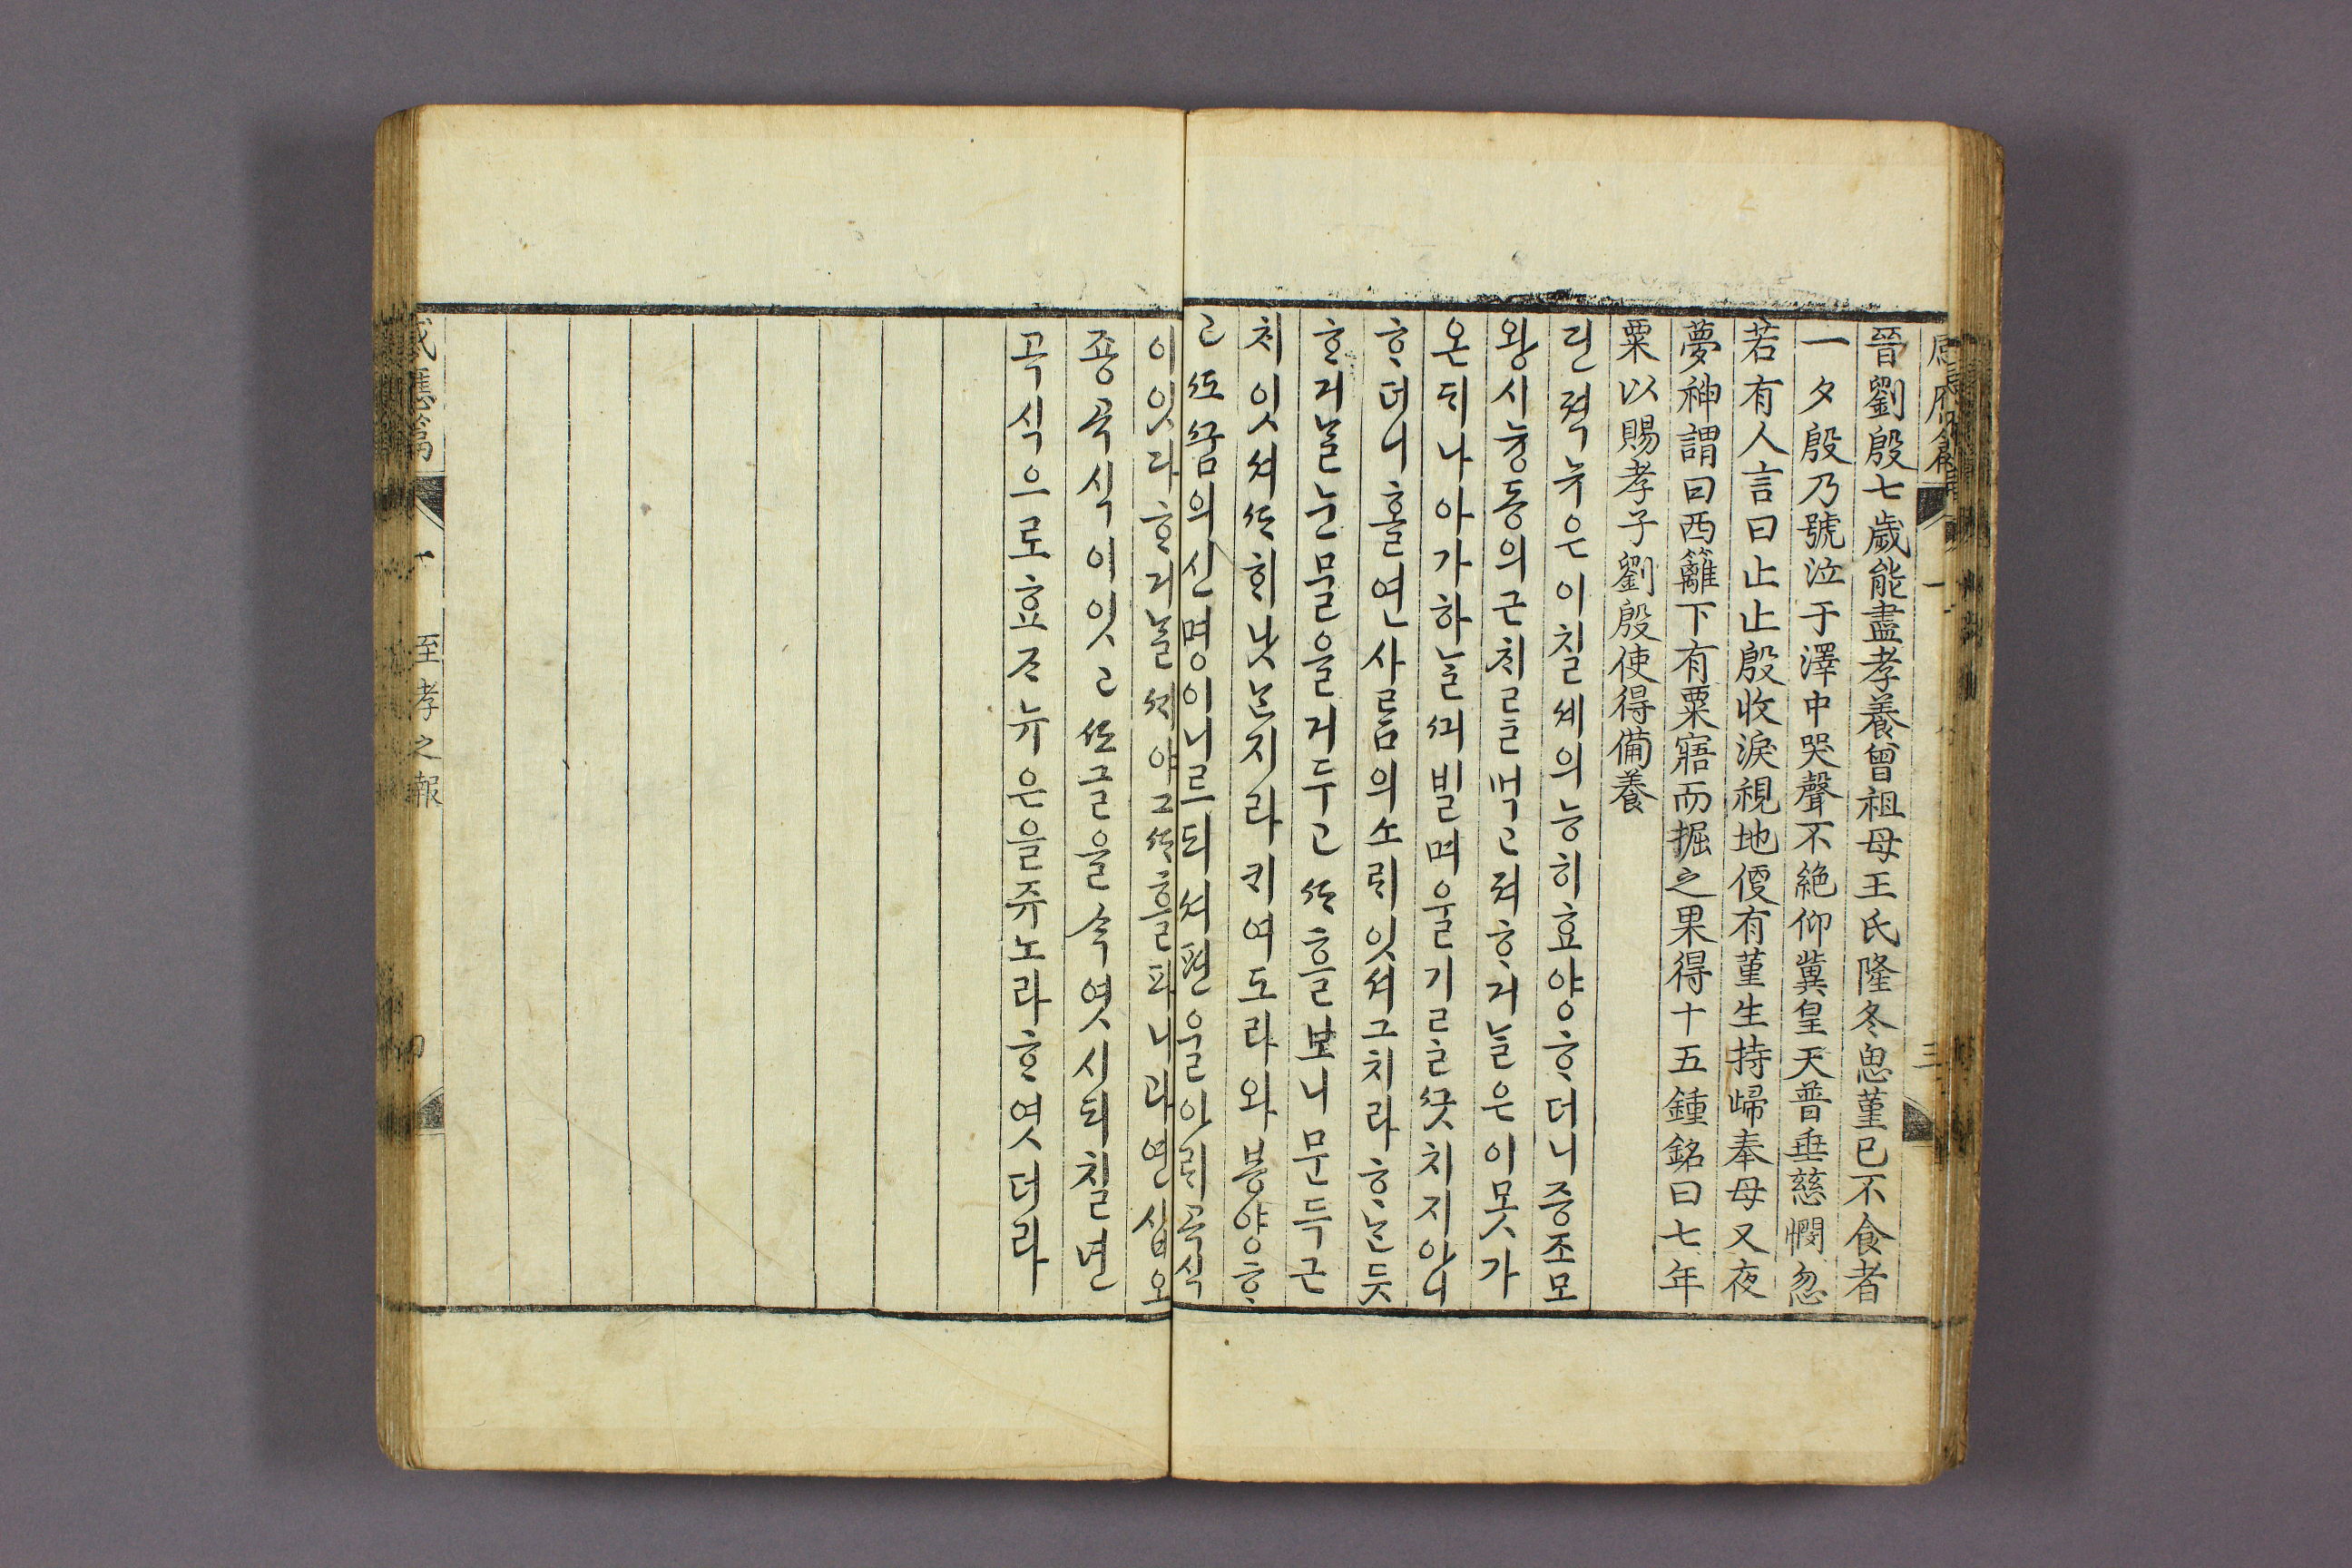 晉劉殷七歲能盡孝養曾祖母王氏隆冬思菫已不食者
一夕殷乃號泣于澤中哭聲不絶仰冀皇天普垂慈憫忽
若有人言曰止止殷收淚視地便有菫生持歸奉母又夜
夢神謂曰西籬下有粟寤而掘之果得十五鍾銘曰七年
粟以賜孝子劉殷使得備養
진젹뉴은이칠셰의능히효양ᄒᆞ더니증조모
왕시늉동의근ᄎᆡᄅᆞᆯ먹고져ᄒᆞ거늘은이못가
온ᄃᆡ나아가하ᄂᆞᆯᄭᅴ빌며울기ᄅᆞᆯᄭᅳᆺ치지아니
ᄒᆞ더니홀연사ᄅᆞᆷ의소ᄅᆡ잇셔그치라ᄒᆞᄂᆞᆫ듯
ᄒᆞ거ᄂᆞᆯ눈물을거두고ᄯᅡ흘보니문득근
ᄎᆡ잇셔ᄯᅡᄒᆡ낫ᄂᆞᆫ지라ᄏᆡ여도라와봉양ᄒᆞ
고ᄯᅩᄭᅮᆷ의신명이니르되셔편울아ᄅᆡ곡식
이잇다ᄒᆞ거ᄂᆞᆯᄭᆡ야그ᄯᅡ흘파니과연십오
죵곡식이잇고ᄯᅩ글을숙엿시되칠년
곡식으로효ᄌᆞ뉴은을쥬노라ᄒᆞ엿더라
感應篇
十
至孝之報